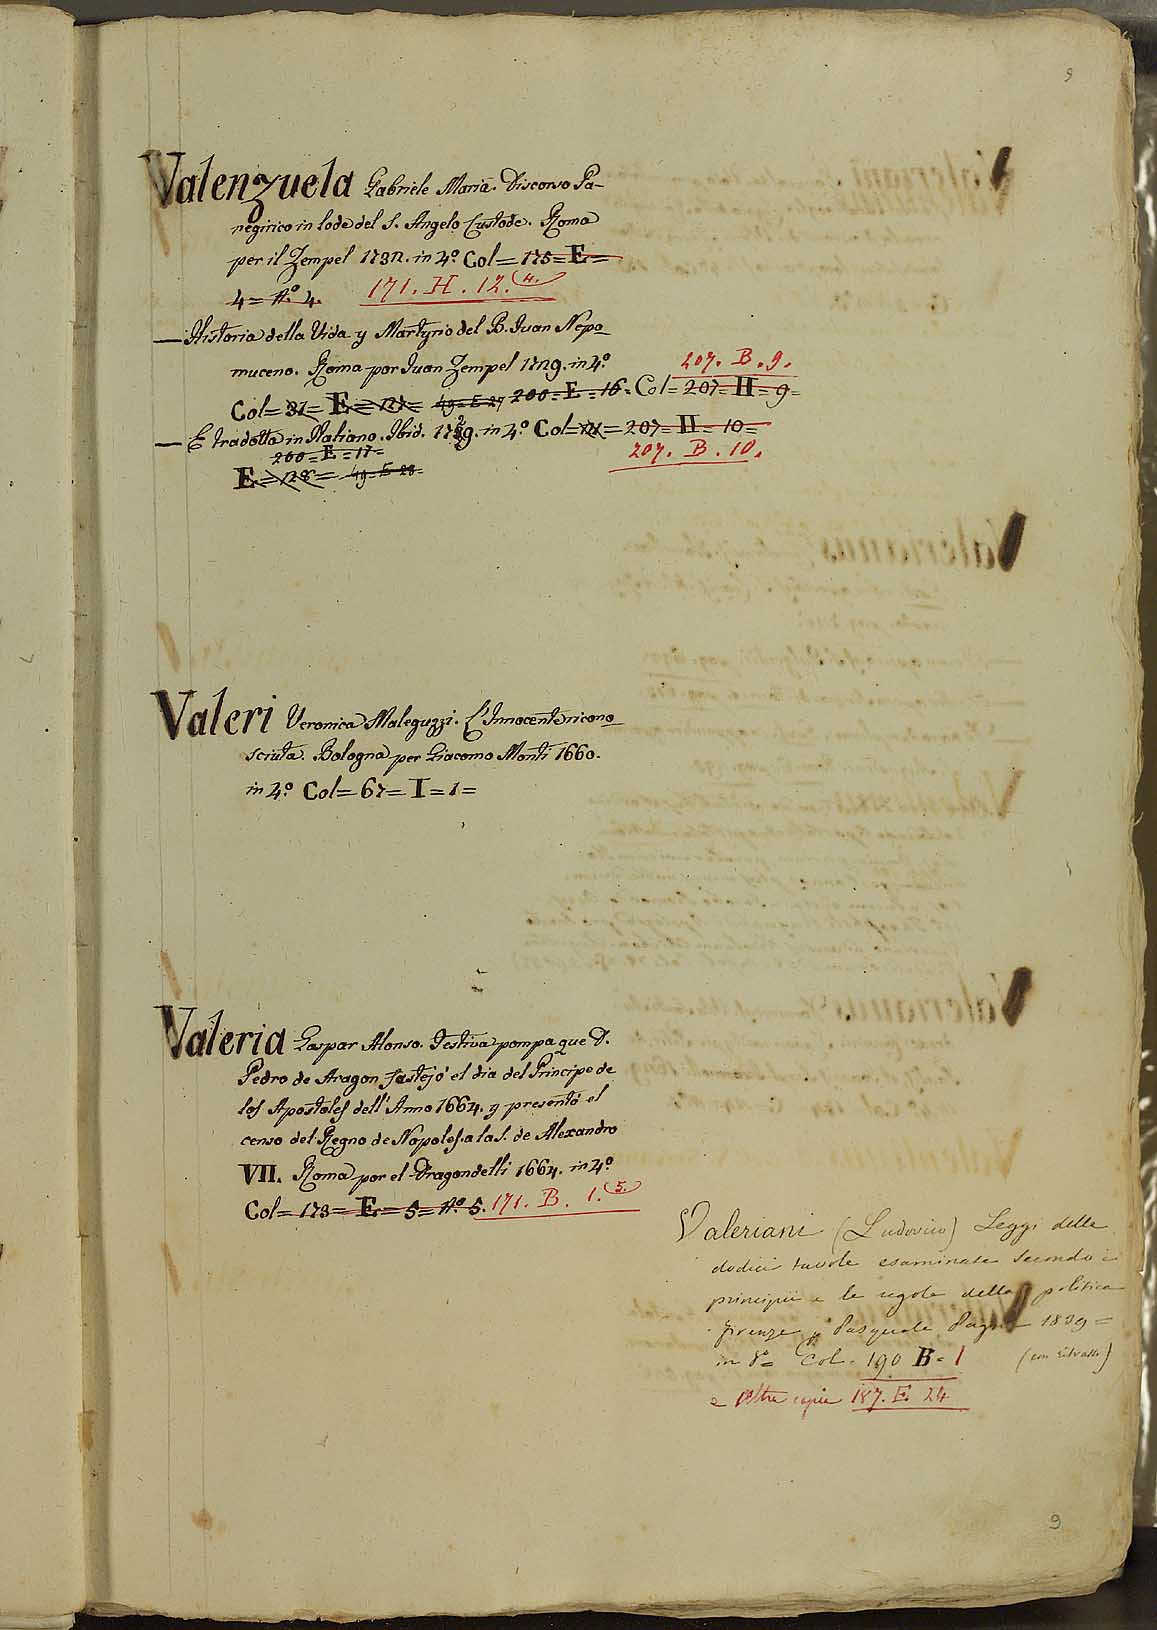 9
Valenzuela Gabriele Maria. Discorso Pa-
negirico in lode del S. Angelo Custode. Roma
per il Zempel 1732. in 4.º Col= 175= E=
4= Nº. 4. 171. H. 12. (4.
— Historia della Vida y Martyrio del B. Juan Nepo_
muceno. Roma por Juan Zempel 1729. in 4.º 207. B. 9.
Col= 31= E= 127= 49= E 27 200= E= 16. Col= 207= H= 9=
— E tradotta in Italiano. Ibid. 1729. in 4.º Col= = 207= H= 10=
200= E= 17= 207. B. 10.
E= 128= 49= E 28=
Valeri Veronica Maleguzzi. L'Innocente ricono_
sciuta. Bologna per Giacomo Monti 1660.
in 4.º Col= 67= I= 1=
Valeria Gaspar Alonso. Festiva pompa que D.
Pedro de Aragon fastejó el dia del Principe de
los Apostoles dell' Anno 1664. y presentó el
censo del Regno de Napoles. a la S. de Alexandro
VII. Roma por el Dragondelli 1664. in 4.º
Col= 173= E= 5= Nº. 5. 171. B. 1. (5.
Valeriani (Ludovico) Leggi delle
dodici tavole esaminate secondo i
principii e le regole della politica
firenze p Pasquale Pagni 1839=
in 8º= Col. 190 B= 1 (con ritratti)
e Altra copia 187. E. 24
9